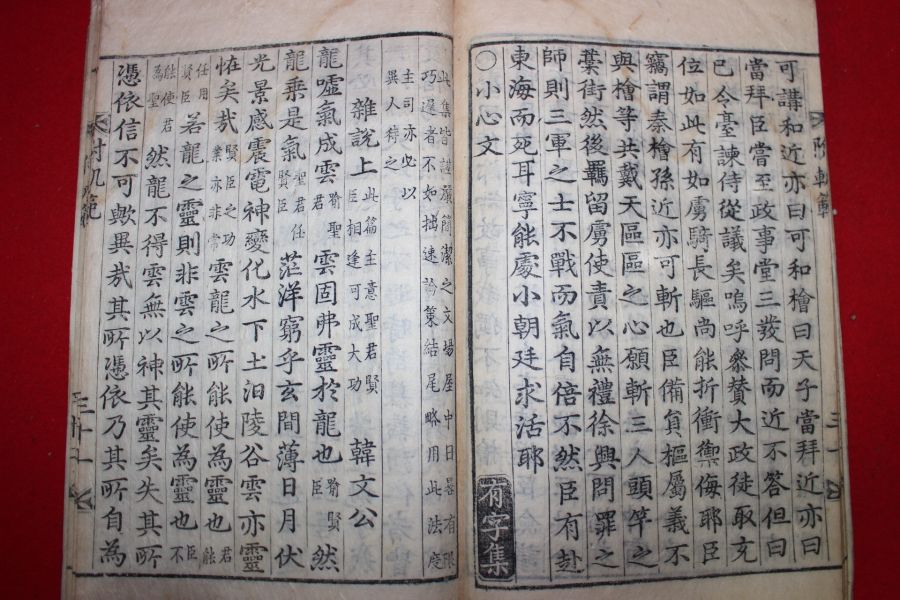 可講和近亦曰可和檜曰天子當拜近亦曰
當拜臣嘗至政事堂三發問而近不答但曰
已令臺諫侍從議矣嗚呼參賛大政徒取充
位如此有如虜騎長驅尚能折衝禦侮耶臣
竊謂秦檜孫近亦可斬也臣備負樞屬義不
與檜等共戴天區區之心願斬三人頭竿之
藁街然後羈留虜使責以無禮徐興問罪之
師則三軍之士不戰而氣自倍不然臣有赴
東海而死耳寧能處小朝廷求活耶
○小心文 有字集
此集皆謹嚴簡潔之文場屋中日晷有限
巧遲者不如拙速論策結尾略用此法度
主司亦必以
異人待之
雜說上 此篇主意聖君賢
臣相逢可成大功 韓文公
龍噓氣成雲 喻聖
君 雲固弗靈於龍也 喻賢
臣 然
龍乘是氣 聖君任
賢臣 茫洋窮乎玄間薄日月伏
光景感震電神變化水下土汩陵谷雲亦靈
怪矣哉 賢臣之功
業亦非常 雲龍之所能使為靈也 君
能
任用
賢臣 若龍之靈則非雲之所能使為靈也 臣
不
能使君
為聖 然龍不得雲無以神其靈矣失其所
憑依信不可歟異哉其所憑依乃其所自為